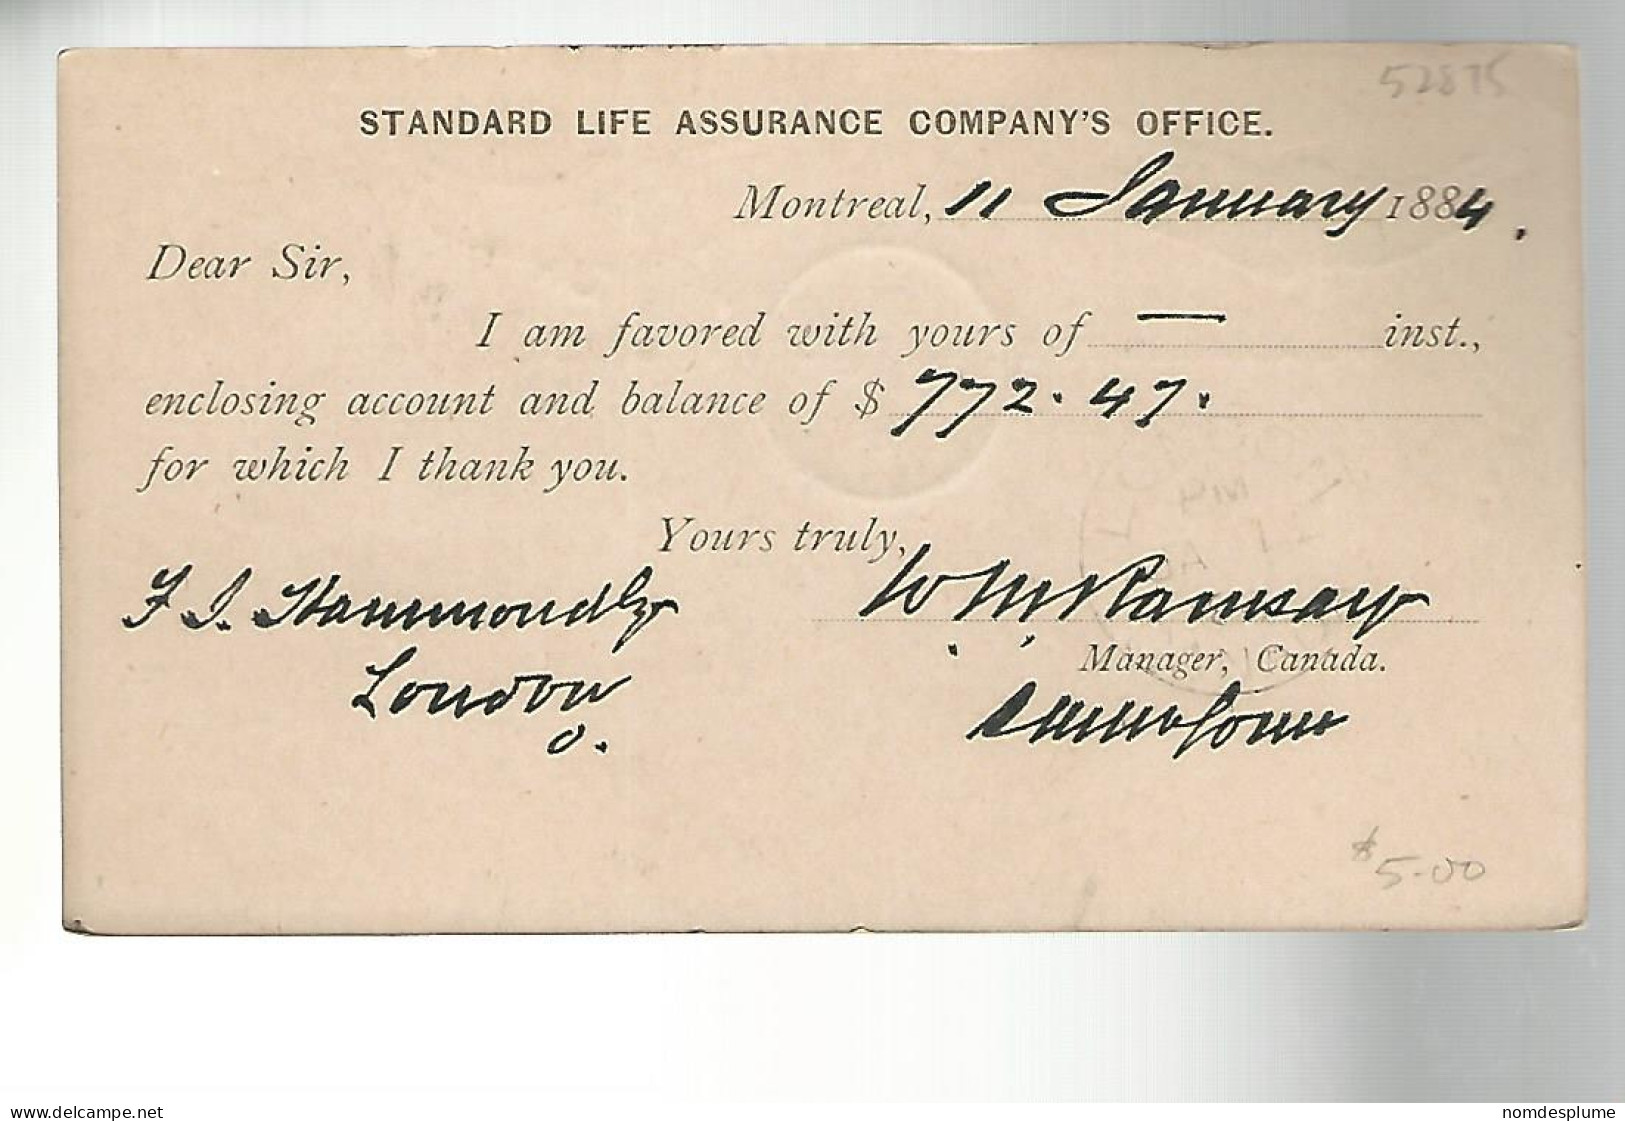 52875
STANDARD LIFE ASSURANCE COMPANY'S OFFICE.
Montreal, 11 January 1884.
Dear Sir,
I am favored with yours of — inst.,
enclosing account and balance of $ 772.47.
for which I thank you.
Yours truly,
F. J. Hammond Esq W M Ramsay
London Manager, Canada.
O.
$5.00
delcampe.net nomdesplume